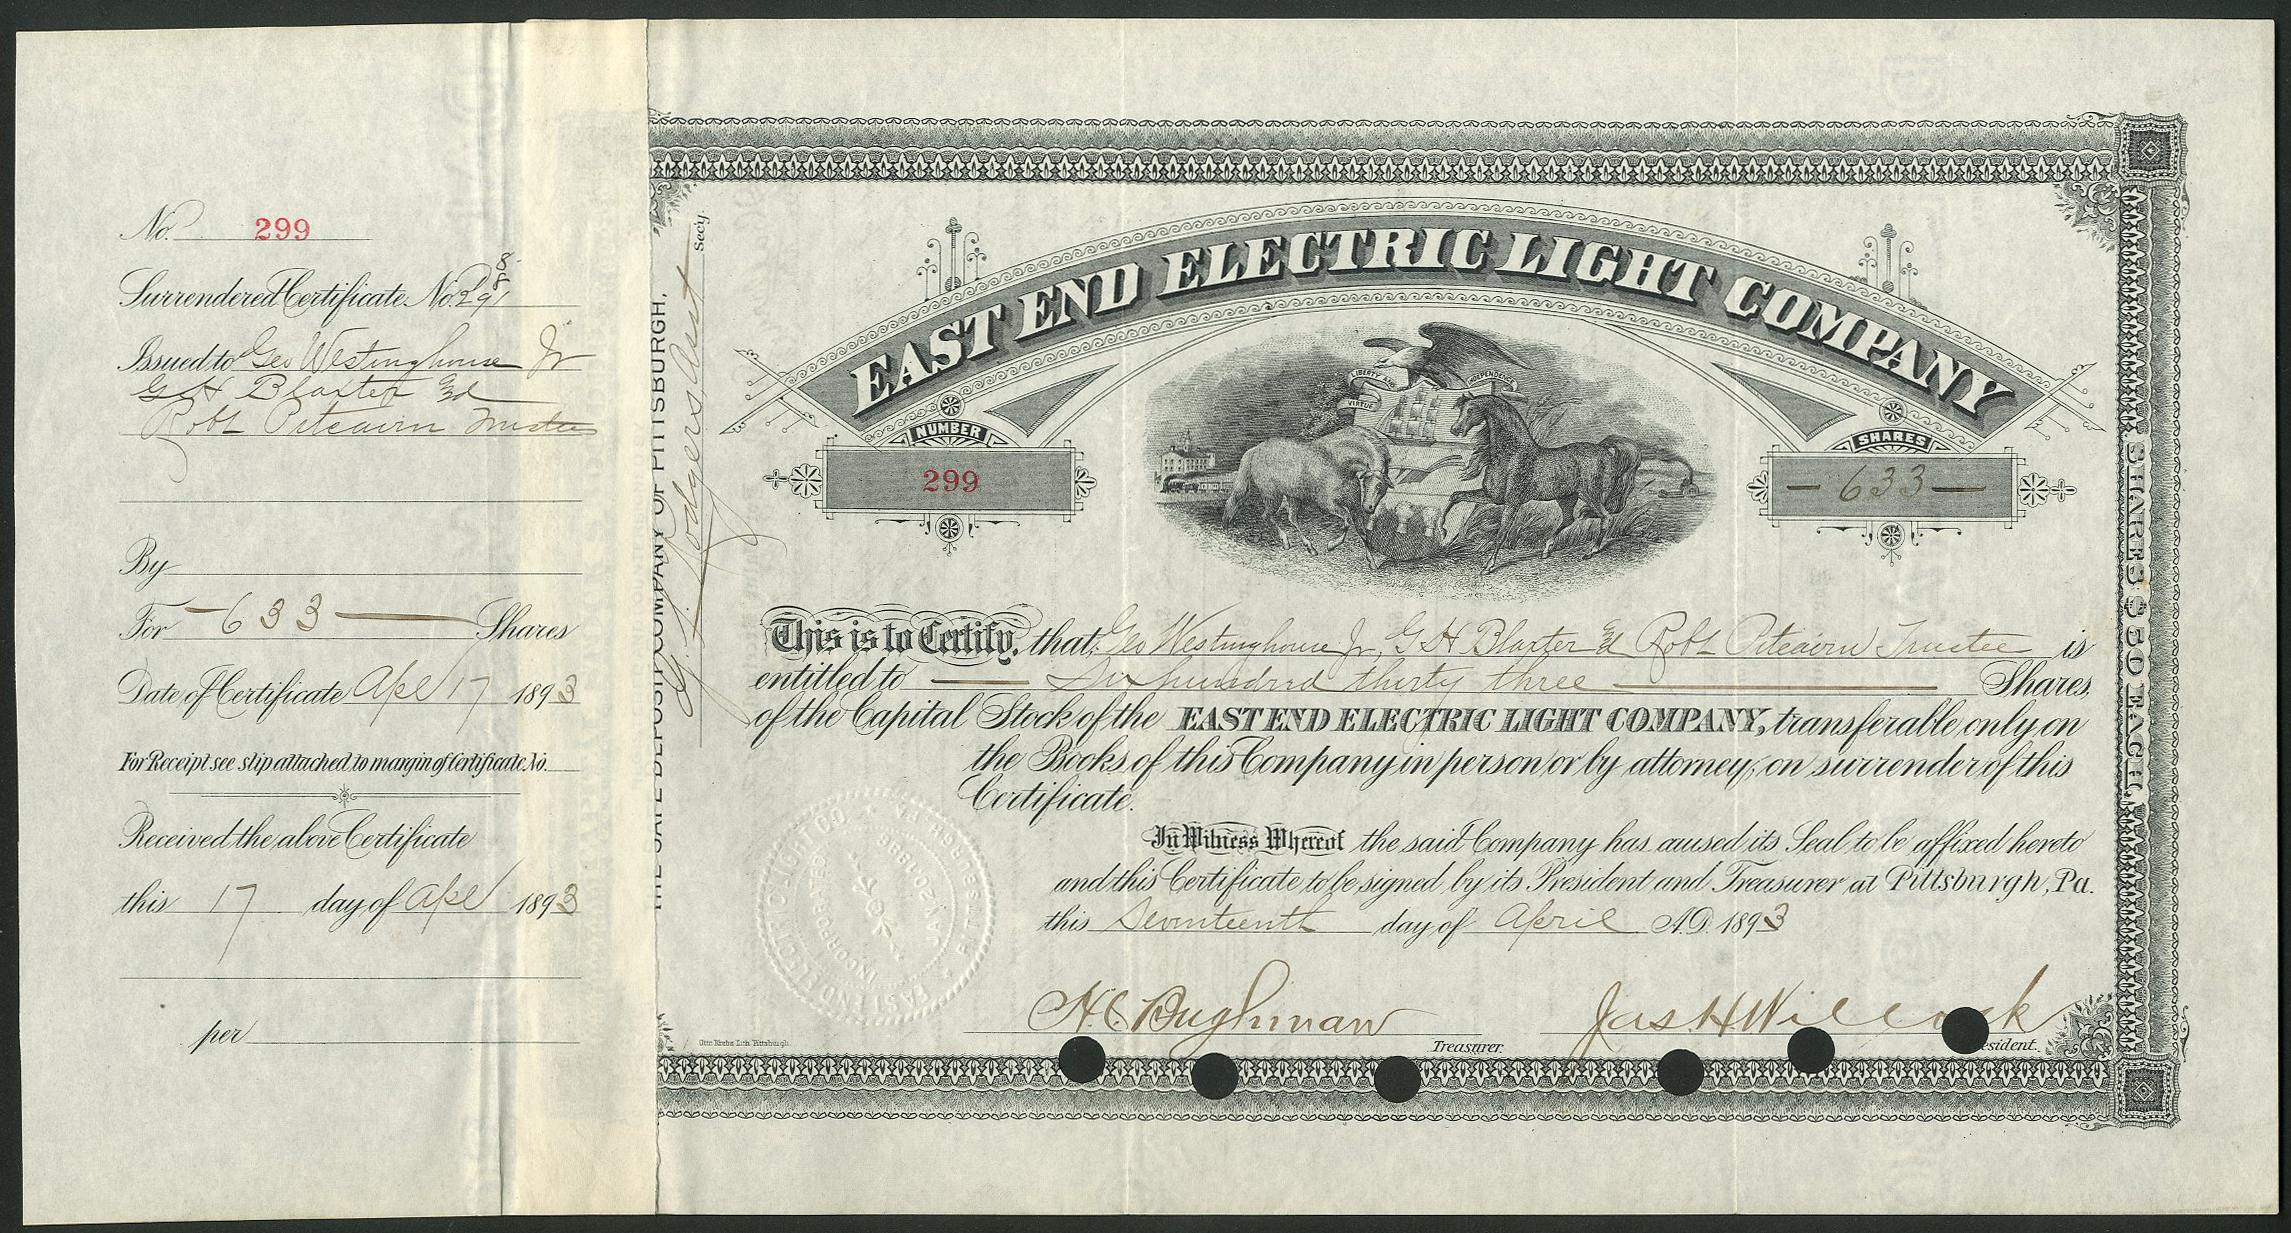 No. 299
Surrendered Certificate No. 298
Issued to Geo Westinghouse Jr
G H Blaxter &
Robt Pitcairn Trustee
By
For — 633 — Shares
Date of Certificate Apl 17 1893
For Receipt see slip attached to margin of Certificate No.
Received the above Certificate
this 17 day of Apl 1893
per
THE SAFE DEPOSIT COMPANY OF PITTSBURGH,
Rodgers Asst Secy.
EAST END ELECTRIC LIGHT COMPANY
LIBERTY AND INDEPENDENCE
VIRTUE
NUMBER
299
SHARES
— 633 —
SHARES $50 EACH.
This is to Certify, that Geo Westinghouse Jr, G H Blaxter & Robt Pitcairn Trustee is
entitled to — Six hundred thirty three — Shares,
of the Capital Stock of the EAST END ELECTRIC LIGHT COMPANY, transferable only on
the Books of this Company in person or by attorney, on surrender of this
Certificate.
In Witness Whereof the said Company has caused its Seal to be affixed hereto
and this Certificate to be signed by its President and Treasurer at Pittsburgh, Pa.
this Seventeenth day of April A.D. 1893
EAST END ELECTRIC LIGHT CO.
INCORPORATED
H.C. Bughman
Treasurer.
Jas H Willcock
esident.
Otto Krebs Lith. Pittsburgh.